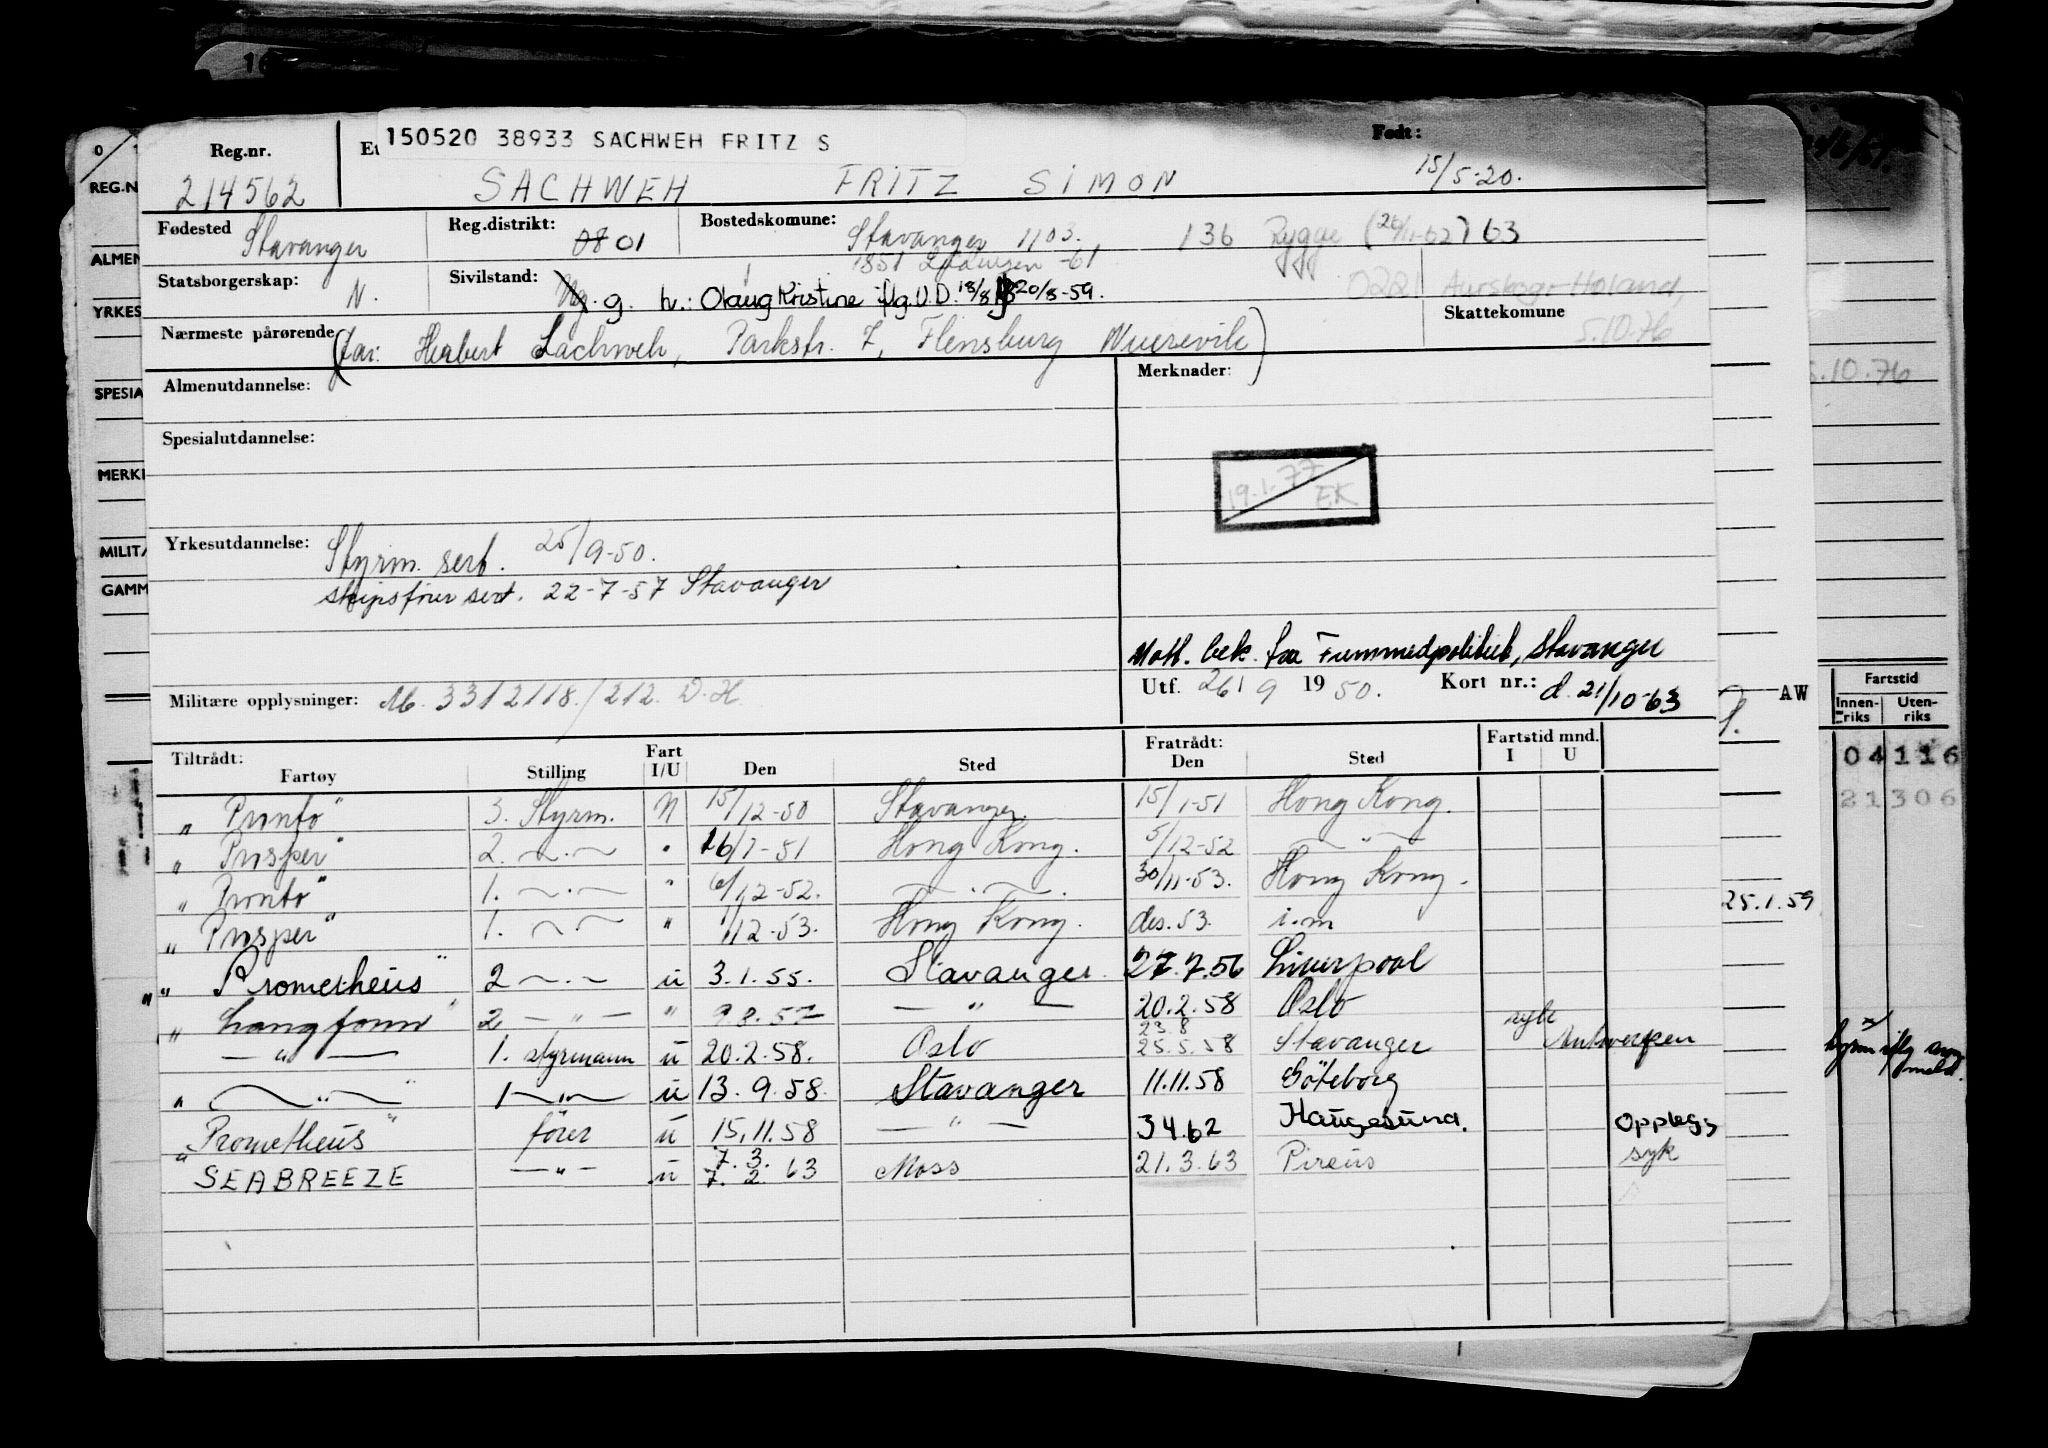 150520 38933 SACHWEH FRITZ S
Reg.nr. Et Født:
214562 SACHWEH FRITZ SIMON 15/5-20.
Fødested Stavanger Reg.distrikt: 08 01 Bostedskomune: Stavanger 1103. 136 Rygge (26/11-62) 63
1851 -61
Statsborgerskap: N. Sivilstand: Ug. g. h.: Olaug Kristine iflg U.D. 18/8 20/8-59. 0221 Aurskog-Høland
Nærmeste pårørende (far: Herbert Sachweh, Parkstr. 7, Flensburg ) Skattekomune 5.10.76
Almenutdannelse: Merknader:
Spesialutdannelse:
19.1.77 EK
Yrkesutdannelse: Styrm. sert. 25/9-50.
skipsfører sert. 22-7-57 Stavanger
Mott. bek. fra Fremmedpolitiet, Stavanger
Militære opplysninger: M. 3312118./212. D.H. Utf. 26/9 1950. Kort nr.: d. 21/10-63
Tiltrådt: Fartøy Stilling Fart I/U Den Sted Fratrådt: Den Sted Fartstid mnd. I U
" Pronto" 3. Styrm. N 15/12-50 Stavanger 15/1-51 Hong Kong.
" Prosper" 2. —.— " 16/1-51 Hong Kong. 5/12-52 — " —
" Pronto" 1. —.— " 6/12-52. —.—. 30/11-53. Hong Kong.
" Prosper" 1. —.— " 1/12-53. Hong Kong. des. 53. i.m
" Prometheus" 2 —.— u 3.1.55. Stavanger 27.7.56 Liverpool
" Langfonn" 2 — " — " 9.8.57 — " — 20.2.58 Oslo
— " — 1. styrmann u 20.2.58. Oslo 23.8 25.5.58 Stavanger syk Antwerpen
" — " —" 1 — " — u 13.9.58. Stavanger 11.11.58 Göteborg
"Prometheus" fører u 15.11.58 — " — 3 4.62 Haugesund. Opplegg
SEABREEZE — " — u 7.3. 7.2.63 Moss 21.3.63 Pireus syk
0
REG.N
ALMEN
YRKES
SPESIA
MERK
MILITÆ
GAMM
AW
25.1.59
5.10.76
Fartstid
Innen-riks Uten-riks
04 116
21 306